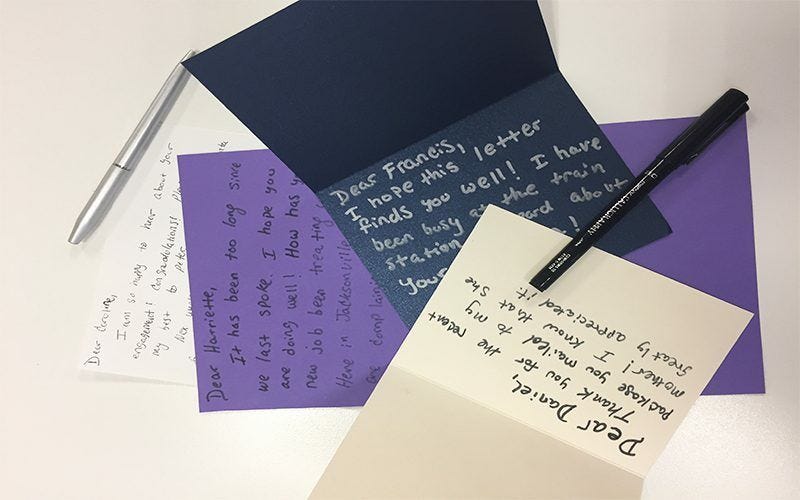 Dear Caroline,
I am so happy to hear about your
engagement! Congradulations!
my best to Peter
Dear Harriette,
It has been too long since
we last spoke. I hope you
are doing well! How has
new job been treating
Here in Jacksonville
are
Dear Francis,
I hope this letter
finds you well! I have
been busy at the train
station heard about
Dear Daniel,
Thank you for the recent
package you mailed to my
mother! I know that she
greatly appreciated it.
CALLIGRAPHY